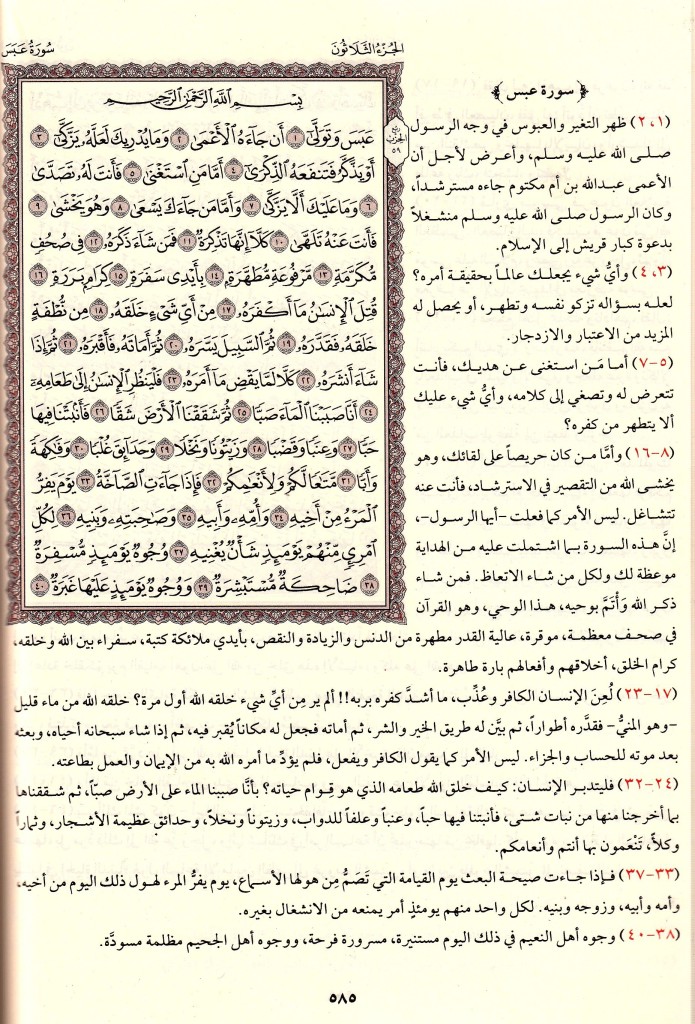 الجزء الثلاثون
سورة عبس
بِسْمِ اللَّهِ الرَّحْمَٰنِ الرَّحِيمِ
عَبَسَ وَتَوَلَّىٰ ١ أَن جَاءَهُ الْأَعْمَىٰ ٢ وَمَا يُدْرِيكَ لَعَلَّهُ يَزَّكَّىٰ ٣
أَوْ يَذَّكَّرُ فَتَنفَعَهُ الذِّكْرَىٰ ٤ أَمَّا مَنِ اسْتَغْنَىٰ ٥ فَأَنتَ لَهُ تَصَدَّىٰ
٦ وَمَا عَلَيْكَ أَلَّا يَزَّكَّىٰ ٧ وَأَمَّا مَن جَاءَكَ يَسْعَىٰ ٨ وَهُوَ يَخْشَىٰ ٩
فَأَنتَ عَنْهُ تَلَهَّىٰ ١٠ كَلَّا إِنَّهَا تَذْكِرَةٌ ١١ فَمَن شَاءَ ذَكَرَهُ ١٢ فِي صُحُفٍ
مُّكَرَّمَةٍ ١٣ مَّرْفُوعَةٍ مُّطَهَّرَةٍ ١٤ بِأَيْدِي سَفَرَةٍ ١٥ كِرَامٍ بَرَرَةٍ ١٦
قُتِلَ الْإِنسَانُ مَا أَكْفَرَهُ ١٧ مِنْ أَيِّ شَيْءٍ خَلَقَهُ ١٨ مِن نُّطْفَةٍ
خَلَقَهُ فَقَدَّرَهُ ١٩ ثُمَّ السَّبِيلَ يَسَّرَهُ ٢٠ ثُمَّ أَمَاتَهُ فَأَقْبَرَهُ ٢١ ثُمَّ إِذَا
شَاءَ أَنشَرَهُ ٢٢ كَلَّا لَمَّا يَقْضِ مَا أَمَرَهُ ٢٣ فَلْيَنظُرِ الْإِنسَانُ إِلَىٰ طَعَامِهِ
٢٤ أَنَّا صَبَبْنَا الْمَاءَ صَبًّا ٢٥ ثُمَّ شَقَقْنَا الْأَرْضَ شَقًّا ٢٦ فَأَنبَتْنَا فِيهَا
حَبًّا ٢٧ وَعِنَبًا وَقَضْبًا ٢٨ وَزَيْتُونًا وَنَخْلًا ٢٩ وَحَدَائِقَ غُلْبًا ٣٠ وَفَاكِهَةً
وَأَبًّا ٣١ مَّتَاعًا لَّكُمْ وَلِأَنْعَامِكُمْ ٣٢ فَإِذَا جَاءَتِ الصَّاخَّةُ ٣٣ يَوْمَ يَفِرُّ
الْمَرْءُ مِنْ أَخِيهِ ٣٤ وَأُمِّهِ وَأَبِيهِ ٣٥ وَصَاحِبَتِهِ وَبَنِيهِ ٣٦ لِكُلِّ
امْرِئٍ مِّنْهُمْ يَوْمَئِذٍ شَأْنٌ يُغْنِيهِ ٣٧ وُجُوهٌ يَوْمَئِذٍ مُّسْفِرَةٌ
٣٨ ضَاحِكَةٌ مُّسْتَبْشِرَةٌ ٣٩ وَوُجُوهٌ يَوْمَئِذٍ عَلَيْهَا غَبَرَةٌ ٤٠
ربع
الحزب
٥٩
﴿ سورة عبس ﴾
(١، ٢) ظهر التغير والعبوس في وجه الرسول
صلى الله عليه وسلم، وأعرض لأجل أن
الأعمى عبدالله بن أم مكتوم جاءه مسترشداً،
وكان الرسول صلى الله عليه وسلم منشغلاً
بدعوة كبار قريش إلى الإسلام.
(٣، ٤) وأيُّ شيء يجعلك عالماً بحقيقة أمره؟
لعله بسؤاله تزكو نفسه وتطهر، أو يحصل له
المزيد من الاعتبار والازدجار.
(٥-٧) أما مَن استغنى عن هديك، فأنت
تتعرض له وتصغي إلى كلامه، وأيُّ شيء عليك
ألا يتطهر من كفره؟
(٨-١٦) وأمَّا من كان حريصاً على لقائك، وهو
يخشى الله من التقصير في الاسترشاد، فأنت عنه
تتشاغل. ليس الأمر كما فعلت -أيها الرسول-،
إنَّ هذه السورة بما اشتملت عليه من الهداية
موعظة لك ولكل من شاء الاتعاظ. فمن شاء
ذكر الله وَأْتَمَّ بوحيه، هذا الوحي، وهو القرآن
في صحف معظمة، موقرة، عالية القدر مطهرة من الدنس والزيادة والنقص، بأيدي ملائكة كتبة، سفراء بين الله وخلقه،
كرام الخلق، أخلاقهم وأفعالهم بارة طاهرة.
(١٧-٢٣) لُعِنَ الإنسان الكافر وعُذِّب، ما أشدَّ كفره بربه!! ألم ير مِن أيِّ شيء خلقه الله أول مرة؟ خلقه الله من ماء قليل
-وهو المنيُّ- فقدَّره أطواراً، ثم بيَّن له طريق الخير والشر، ثم أماته فجعل له مكاناً يُقبر فيه، ثم إذا شاء سبحانه أحياه، وبعثه
بعد موته للحساب والجزاء. ليس الأمر كما يقول الكافر ويفعل، فلم يؤدِّ ما أمره الله به من الإيمان والعمل بطاعته.
(٢٤-٣٢) فليتدبر الإنسان: كيف خلق الله طعامه الذي هو قِوام حياته؟ بأنَّا صببنا الماء على الأرض صبّاً، ثم شققناها
بما أخرجنا منها من نبات شتى، فأنبتنا فيها حباً، وعنباً وعلفاً للدواب، وزيتوناً ونخلاً، وحدائق عظيمة الأشجار، وثماراً
وكلأً، تَنْعَمون بها أنتم وأنعامكم.
(٣٣-٣٧) فإذا جاءت صيحة البعث يوم القيامة التي تَصَمُّ مِن هولها الأسماع، يوم يفرُّ المرء لهول ذلك اليوم من أخيه،
وأمه وأبيه، وزوجه وبنيه. لكل واحد منهم يومئذٍ أمر يمنعه من الانشغال بغيره.
(٣٨-٤٠) وجوه أهل النعيم في ذلك اليوم مستنيرة، مسرورة فرحة، ووجوه أهل الجحيم مظلمة مسودَّة.
٥٨٥